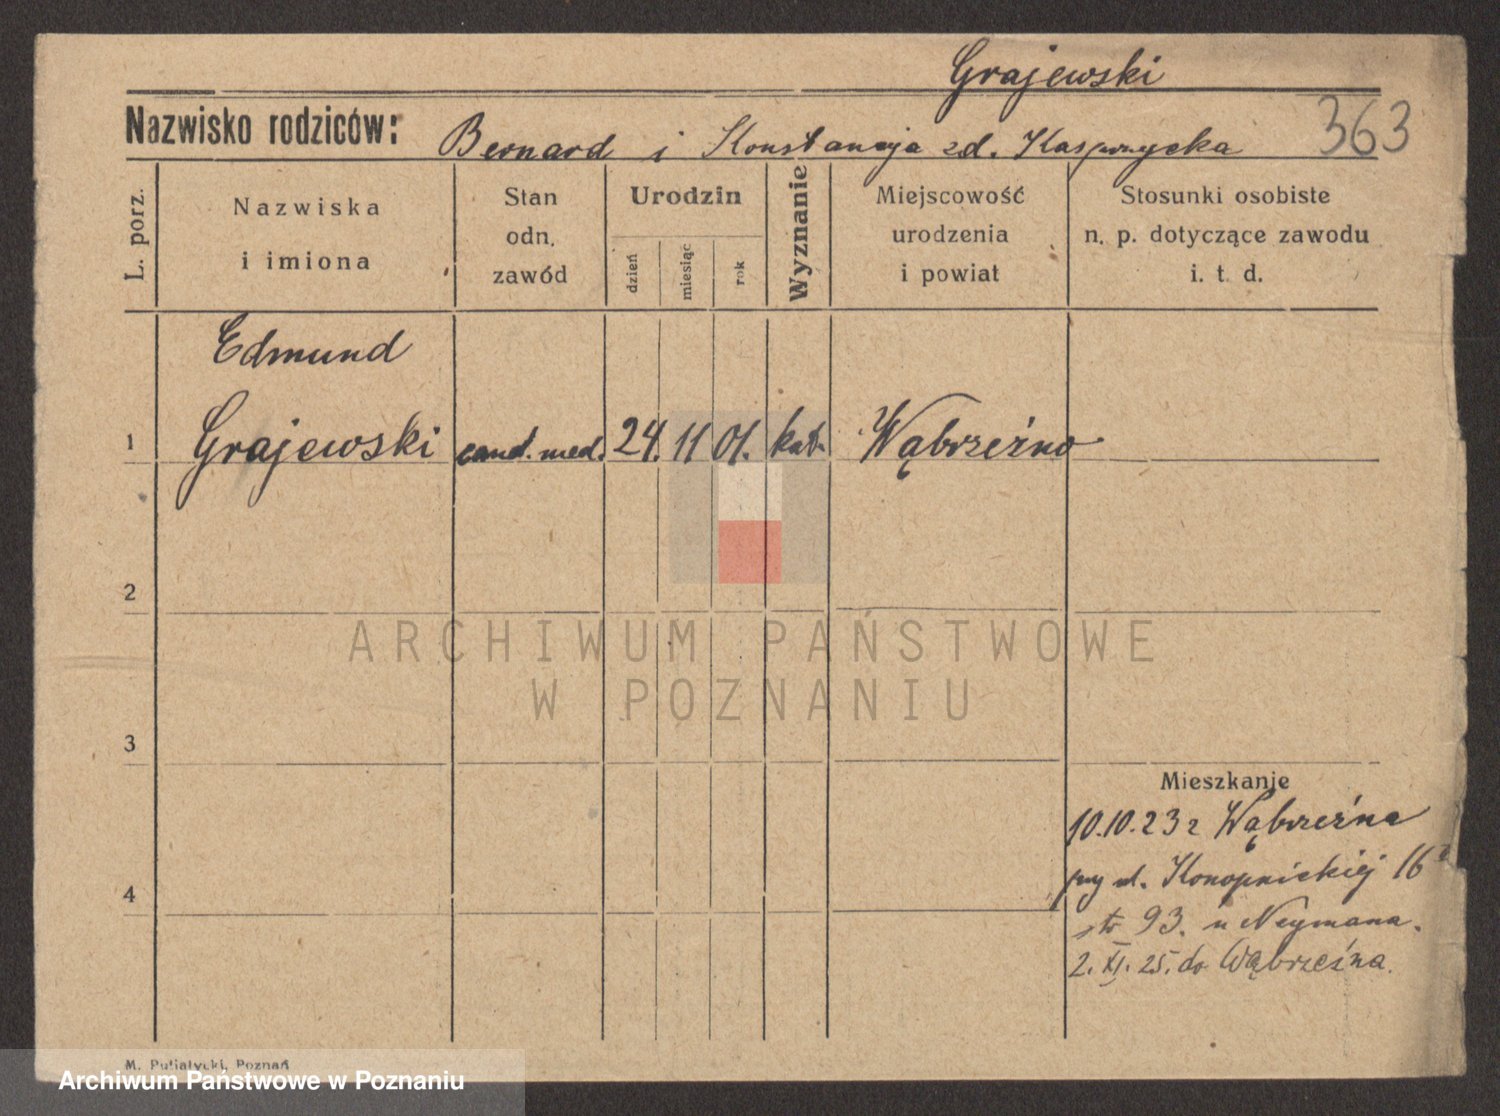 Grajewski
Nazwisko rodziców: Bernard i Konstancja zd. Kasprzycka 363
L. porz.
Nazwiska
i imiona
Stan
odn.
zawód
Urodzin
dzień
miesiąc
rok
Wyznanie
Miejscowość
urodzenia
i powiat
Stosunki osobiste
n. p. dotyczące zawodu
i. t. d.
Edmund
1 Grajewski cand. med. 24. 11 01. kat. Wąbrzeźno
2
ARCHIWUM PAŃSTWOWE
W POZNANIU
3
Mieszkanie
10.10.23 z Wąbrzeźna
4
przy ul. Konopnickiej 16
93. u Neymana.
2. XI. 25. do Wąbrzeźna.
M. Putiatycki, Poznań
Archiwum Państwowe w Poznaniu